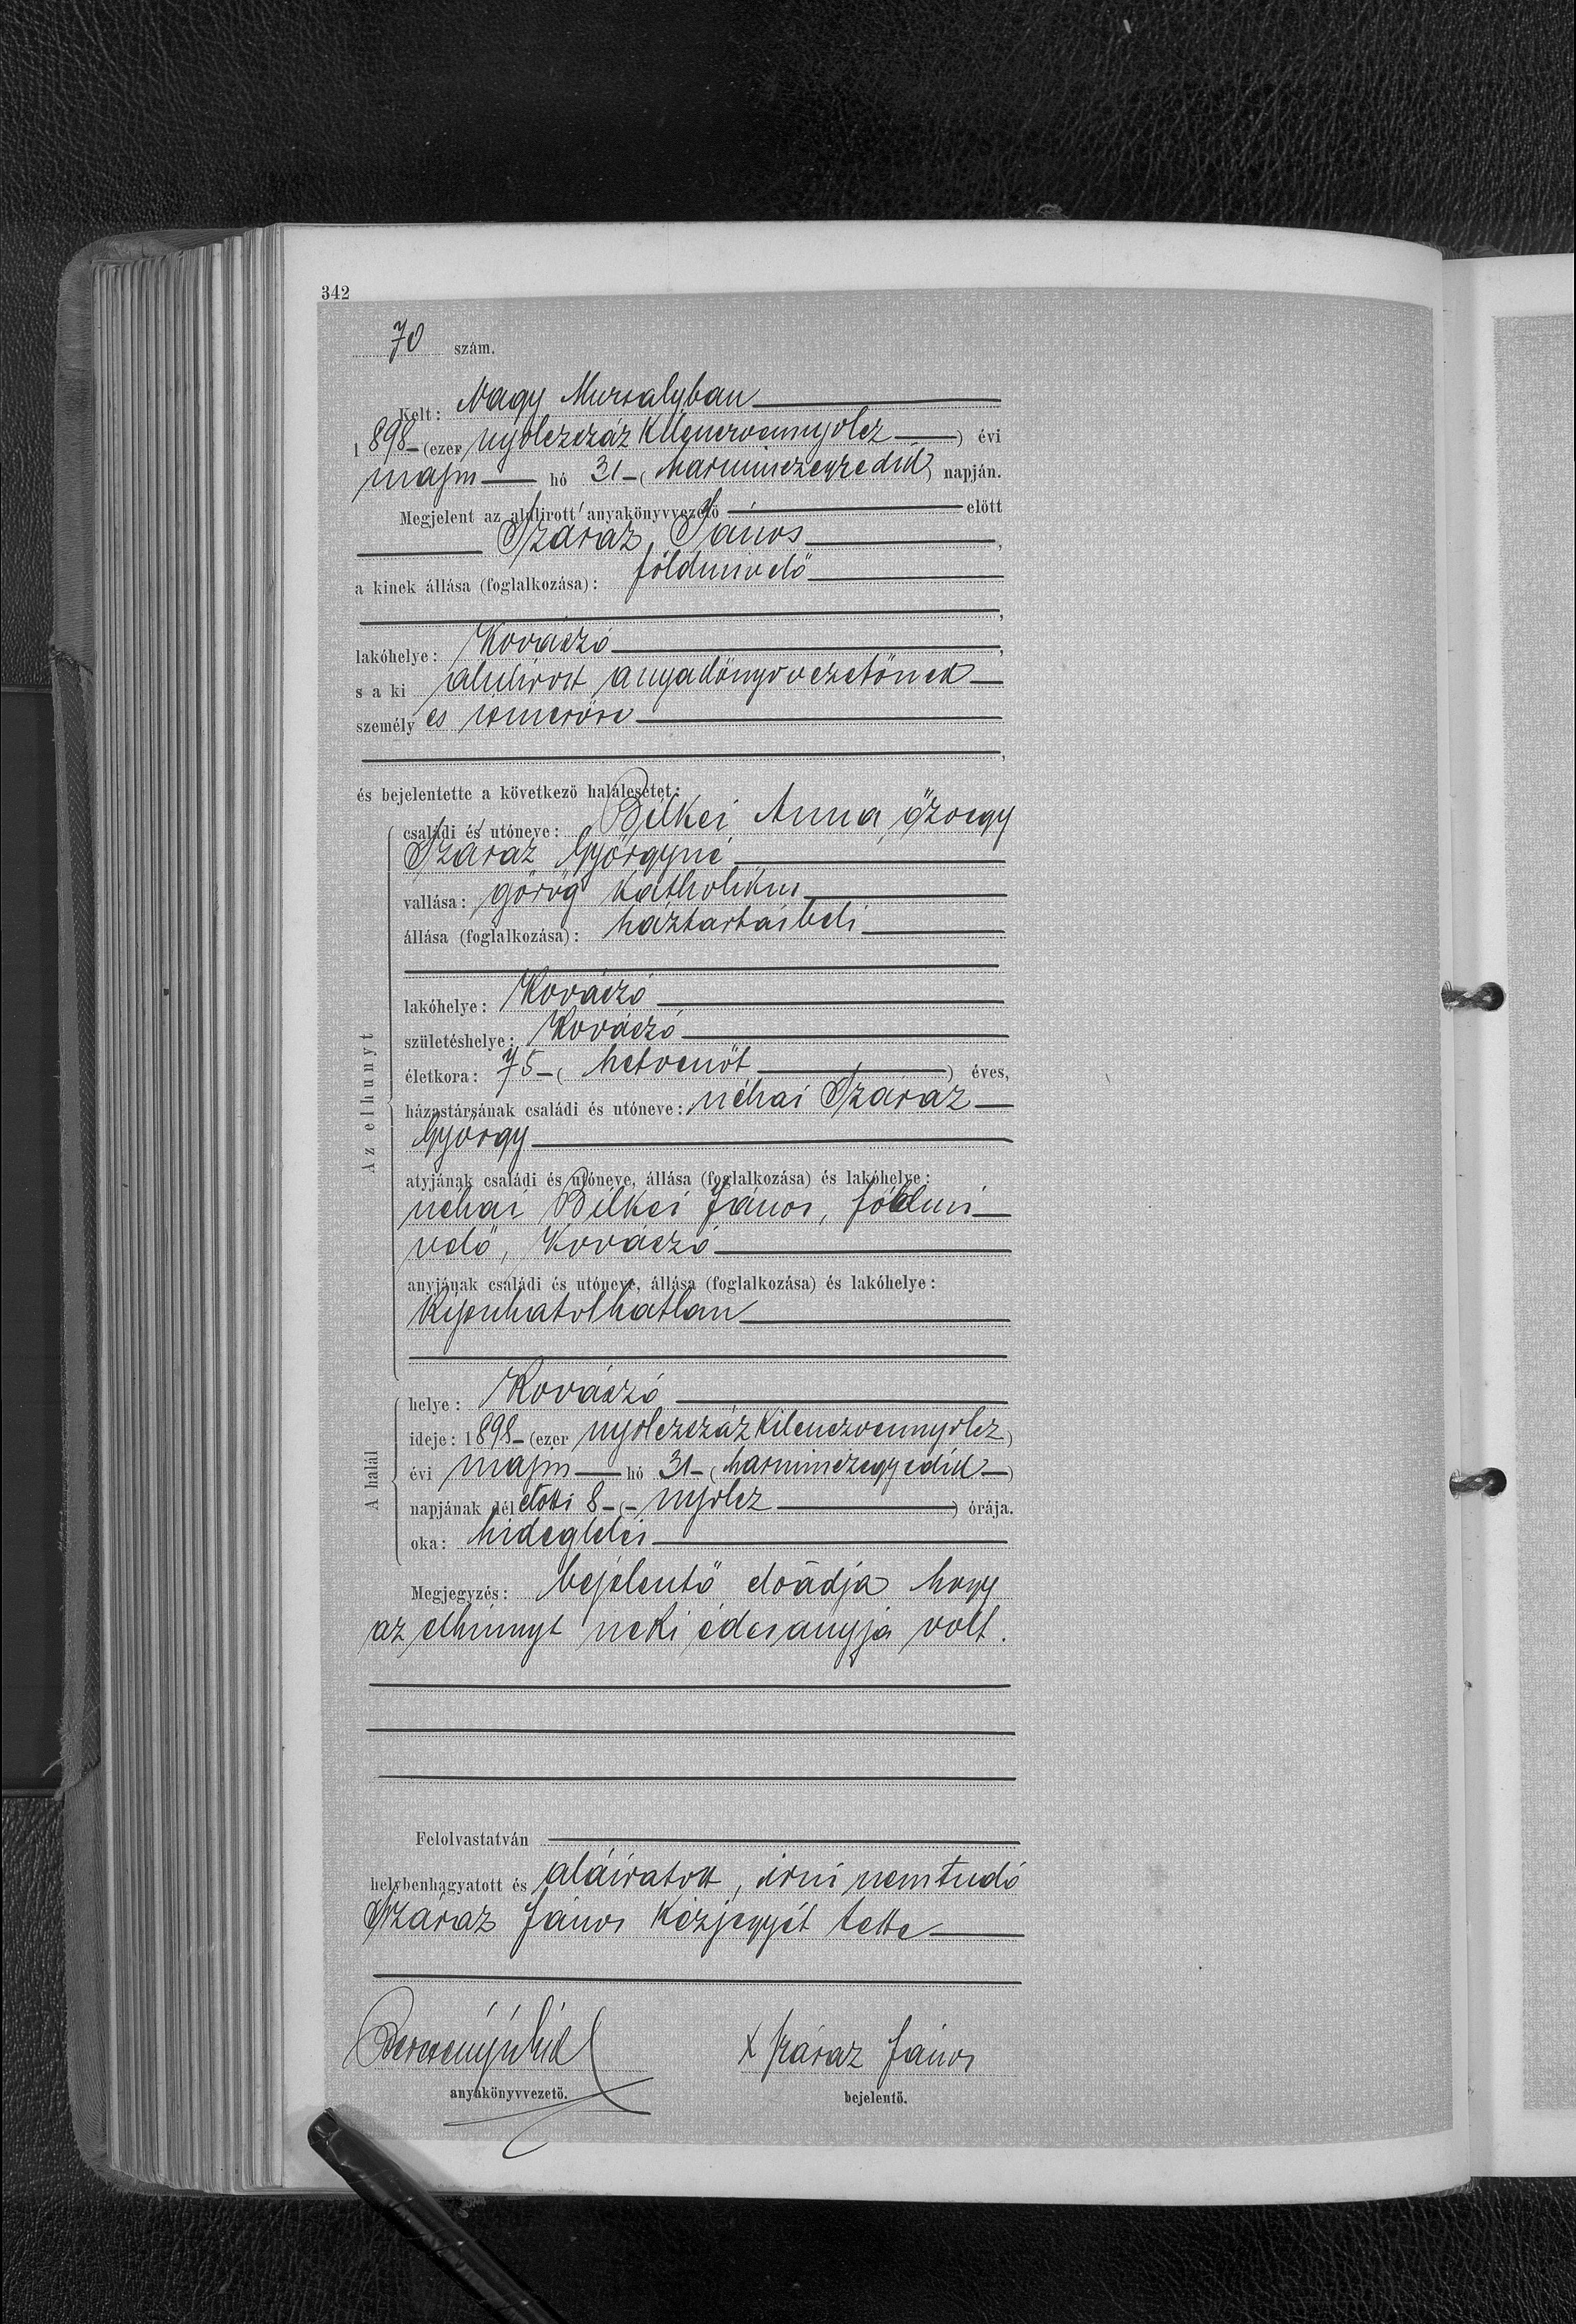 342
70 szám.
Kelt: Nagy Muzsalyban
1898 – (ezer nyolczszáz kilenczvennyolcz) évi
május hó 31 – (harminczegyedik) napján.
Megjelent az alulirott anyakönyvvezető előtt
Száraz János,
a kinek állása (foglalkozása): földmivelő
,
lakóhelye: Kovászó,
s a ki alulirott anyakönyvvezetőnek
személyes ismerőse
,
és bejelentette a következő halálesetet:
Az elhunyt
családi és utóneve: Bilkei Anna, özvegy
Száraz Györgyné
vallása: görög katholikus
állása (foglalkozása): háztartásbeli
lakóhelye: Kovászó
születéshelye: Kovászó
életkora: 75 – (hetvenöt) éves,
házastársának családi és utóneve: néhai Száraz
György
atyjának családi és utóneve, állása (foglalkozása) és lakóhelye:
néhai Bilkei János, földmi
velő, Kovászó
anyjának családi és utóneve, állása (foglalkozása) és lakóhelye:
Kipuhatolhatlan
A halál
helye: Kovászó
ideje: 1898 – (ezer nyolczszáz kilenczvennyolcz)
évi május hó 31 – (harminczegyedik)
napjának délelőtti 8 – (– nyolcz) órája.
oka: hideglelés
Megjegyzés: bejelentő előadja hogy
az elhunyt neki édesanyja volt.
Felolvastatván
helybenhagyatott és aláiratott, irni nem tudó
Száraz János kézjegyét tette
x Száraz János
anyakönyvvezető. bejelentő.